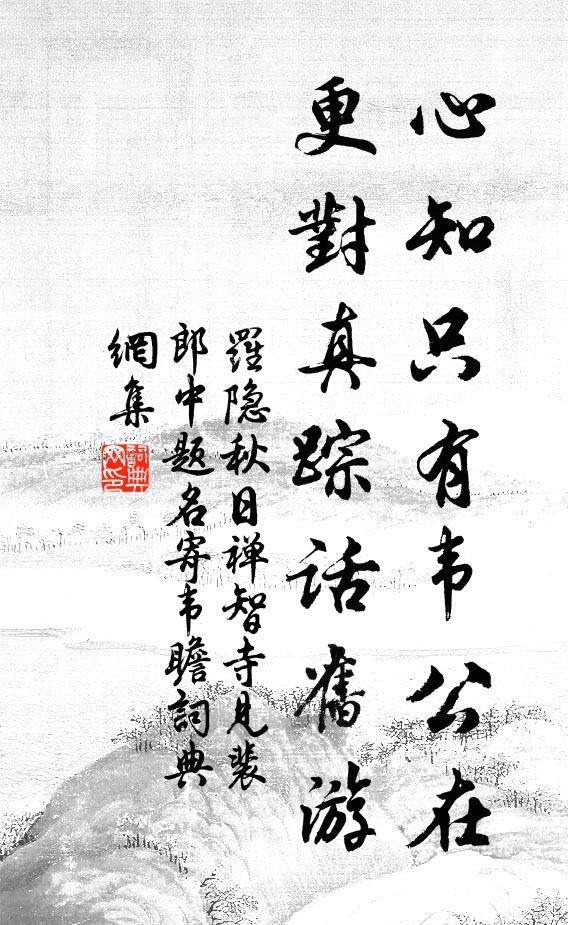 心知只有韦公在
更對真踪话舊游
羅隐秋日禅智寺見裴
郎中题名寄韦瞻詞典
網集
詞典网印